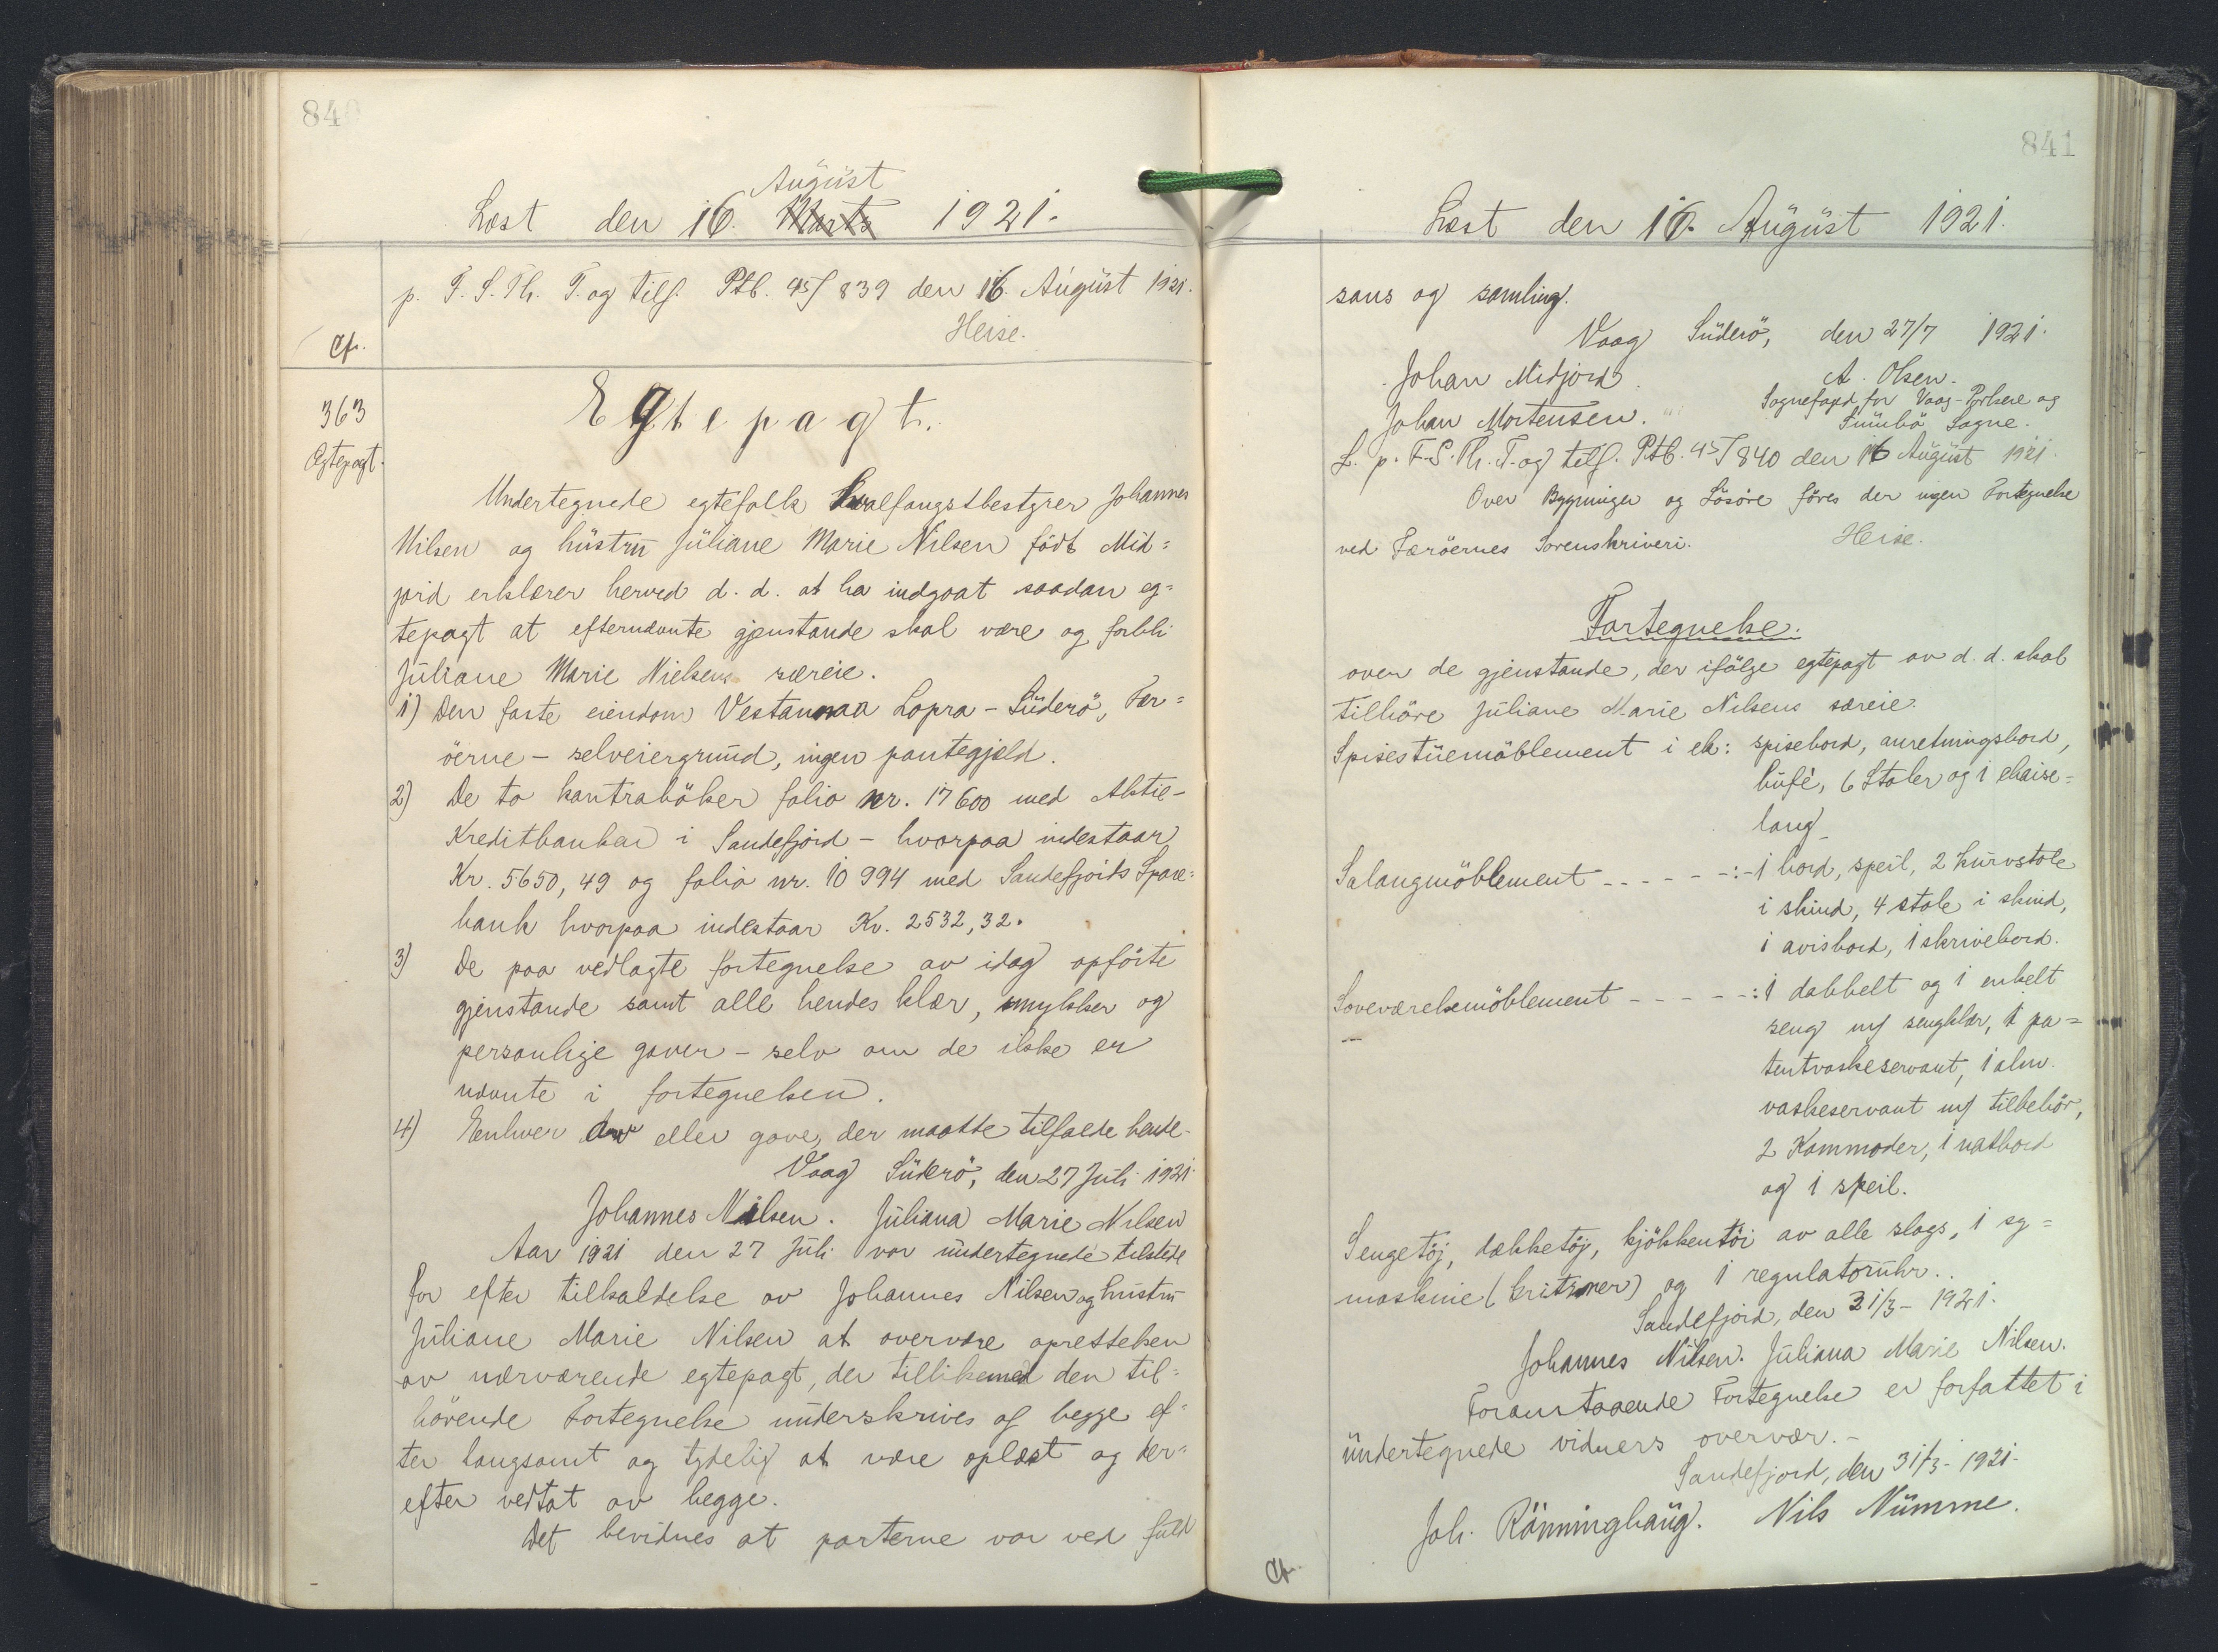 840
August
Læst den 16. Marts 1921.
p. F. S. Th. T. og tilf. Ptb. 45/839 den 16. August 1921.
Heise.
Cfr.
363
Egtepagt.
Egtepagt.
Undertegnede egtefolk hvalfangstbestyrer Johannes
Nilsen og hüstrü Jüliane Marie Nilsen födt Mid=
jord erklærer herved d. d. at ha indgaat saadan eg=
tepagt at efternævnte gjenstande skal være og forbli
Jüliane Marie Nielsens særeie.
1) Den faste eiendom Vestannaa Lopra - Süderö, Fær=
öerne - selveiergrund, ingen pantegjæld.
2) De to kontraböker folio nr. 17600 med Aktie-
Kreditbanken i Sandefjord - hvorpaa indestaar
Kr. 5650,49 og folio nr. 10994 med Sandefjords Spare=
bank hvorpaa indestaar Kr. 2532,32.
3) De paa vedlagte fortegnelse av idag opförte
gjenstande samt alle hendes klær, smykker og
personlige gaver - selv om de ikke er
nævnte i fortegnelsen.
4) Enhver arv eller gave, der maatte tilfalde hende.
Vaag Süderö, den 27 Juli 1921.
Johannes Nilsen. Jüliana Marie Nilsen
Aar 1921 den 27 Juli var undertegnede tilstede
for efter tilkaldelse av Johannes Nilsen og hustru
Jüliane Marie Nilsen at overvære oprettelsen
av nærværende egtepagt, der tillikemed den til=
hörende Fortegnelse underskrives af begge ef=
ter langsomt og tydelig at være oplæst og der=
efter vedtat av begge.
Det bevidnes at parterne var ved fuld
841
Læst den 16. August 1921.
sans og samling.
Vaag Süderö, den 27/7 1921.
Johan Midjord. A. Olsen.
Johan Mortensen. Sognefoged for Vaag-Porkere og
Sumbö Sogne.
L. p. F. S. Th. T. og tilf. Ptb. 45/840 den 16 August 1921.
Over Bygninger og Lösöre föres der ingen Fortegnelse
ved Færöernes Sorenskriveri. Heise.
Fortegnelse.
over de gjenstande, der ifölge egtepagt av d. d. skal
tilhöre Jüliane Marie Nilsens særeie.
Spisestüemöblement i ek: spisebord, anretningsbord,
bufè, 6 Stoler og 1 chaise=
long
Salongmöblement - - - - - -:- 1 bord, speil, 2 kurvstole
i skind, 4 stole i skind,
1 avisbord, 1 skrivebord.
Soveværelsemöblement - - - - -: 1 dobbelt og 1 enkelt
seng m/ sengklær, 1 pa=
tentvaskeservant, 1 alm.
vaskeservant m/ tilbehör,
2 Kommoder, 1 natbord
og 1 speil.
Sengetöj, dækketöj, kjökkentöi av alle slags, 1 sy=
maskine (kritzner) og 1 regulatoruhr..
Sandefjord, den 31/3 - 1921.
Johannes Nilsen. Jüliana Marie Nilsen.
Foranstaaende Fortegnelse er forfattet i
undertegnede vidners overvær. -
Sandefjord, den 31/3 - 1921.
Joh. Rönninghaug. Nils Numme.
Cfr.